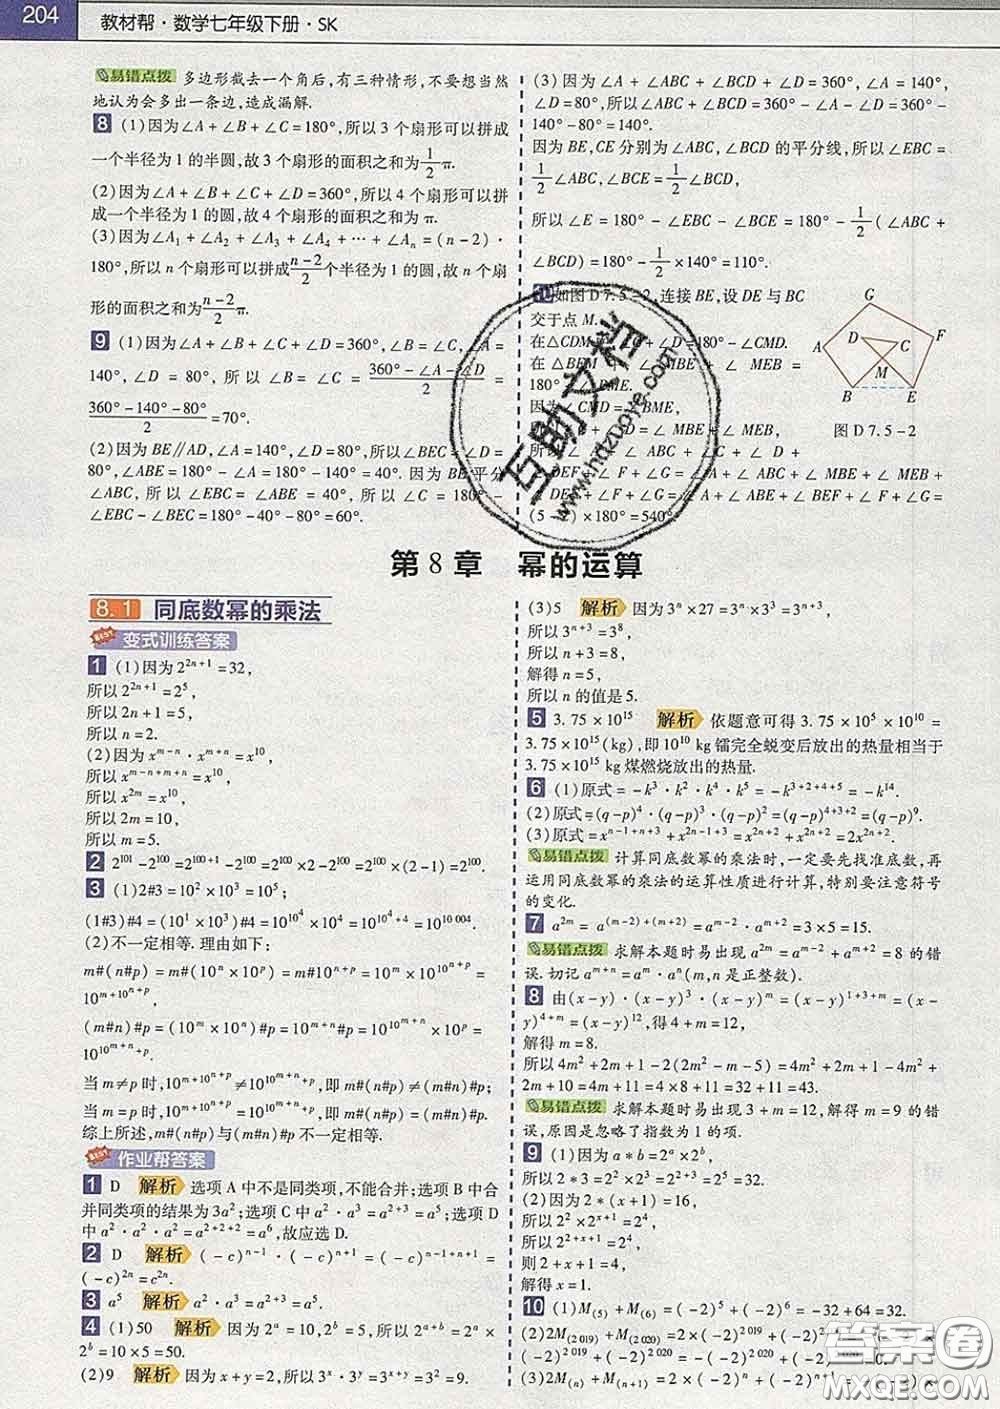 204 教材帮·数学七年级下册·SK
易错点拨 多边形截去一个角后,有三种情形,不要想当然
地认为会多出一条边,造成漏解.
8 (1)因为∠A+∠B+∠C=180°,所以3个扇形可以拼成
一个半径为1的半圆,故3个扇形的面积之和为1/2π.
(2)因为∠A+∠B+∠C+∠D=360°,所以4个扇形可以拼
成一个半径为1的圆,故4个扇形的面积之和为π.
(3)因为∠A₁+∠A₂+∠A₃+∠A₄+⋯+∠Aₙ=(n-2)·
180°,所以n个扇形可以拼成(n-2)/2个半径为1的圆,故n个扇
形的面积之和为(n-2)/2π.
9 (1)因为∠A+∠B+∠C+∠D=360°,∠B=∠C,∠A=
140°,∠D=80°,所以∠B=∠C=(360°-∠A-∠D)/2=
(360°-140°-80°)/2=70°.
(2)因为BE∥AD,∠A=140°,∠D=
80°,∠ABE=180°-∠A=40°.因为BE平分
∠ABC,所以∠EBC=∠ABE=40°,所以∠C=180°-
∠EBC-∠BEC=180°-40°-80°=60°.
(3)因为∠A+∠ABC+∠BCD+∠D=360°,∠A=140°,
∠D=80°,所以∠ABC+∠BCD=360°-∠A-∠D=360°-
140°-80°=140°.
因为BE,CE分别为∠ABC,∠BCD的平分线,所以∠EBC=
1/2∠ABC,∠BCE=1/2∠BCD,
所以∠E=180°-∠EBC-∠BCE=180°-1/2(∠ABC+
∠BCD)=180°-1/2×140°=110°.
10 如图D7.5-2,连接BE,设DE与BC
交于点M.
在△CDM中,∠C+∠D=180°-∠CMD.
在△BEM中,∠MBE+∠MEB=
180°-∠BME.
因为∠CMD=∠BME,
所以∠C+∠D=∠MBE+∠MEB,
所以∠A+∠ABC+∠C+∠D+
∠DEF+∠F+∠G=∠A+∠ABC+∠MBE+∠MEB+
∠DEF+∠F+∠G=∠A+∠ABE+∠BEF+∠F+∠G=
(5-2)×180°=540°.
G
A D C F
M
B E
图D7.5-2
第8章 幂的运算
8.1 同底数幂的乘法
变式训练答案
1 (1)因为2^{2n+1}=32,
所以2^{2n+1}=2^5,
所以2n+1=5,
所以n=2.
(2)因为x^{m-n}·x^{m+n}=x^{10},
所以x^{m-n+m+n}=x^{10},
所以x^{2m}=x^{10},
所以2m=10,
所以m=5.
2 2^{101}-2^{100}=2^{100+1}-2^{100}=2^{100}×2-2^{100}=2^{100}×(2-1)=2^{100}.
3 (1)2#3=10^2×10^3=10^5;
(1#3)#4=(10^1×10^3)#4=10^{10^4}×10^4=10^{10^4+4}=10^{10 004}.
(2)不一定相等.理由如下:
m#(n#p)=m#(10^n×10^p)=m#10^{n+p}=10^m×10^{10^{n+p}}=
10^{m+10^{n+p}},
(m#n)#p=(10^m×10^n)#p=10^{m+n}#p=10^{10^{m+n}}×10^p=
10^{10^{m+n}+p}.
当m≠p时,10^{m+10^{n+p}}≠10^{10^{m+n}+p},即m#(n#p)≠(m#n)#p;
当m=p时,10^{m+10^{n+p}}=10^{10^{m+n}+p},即m#(n#p)=(m#n)#p.
综上所述,m#(n#p)与(m#n)#p不一定相等.
作业帮答案
1 D 解析 选项A中不是同类项,不能合并;选项B中合
并同类项的结果为3a^2;选项C中a^2·a^3=a^{2+3}=a^5;选项D
中a^2·a^2·a^2=a^{2+2+2}=a^6,故应选D.
2 D 解析 (-c)^{n-1}·(-c)^{n+1}=(-c)^{n-1+n+1}=
(-c)^{2n}=c^{2n}.
3 a^5 解析 a^2·a^3=a^{2+3}=a^5.
4 (1)50 解析 因为2^a=10,2^b=5,所以2^{a+b}=2^a×
2^b=10×5=50.
(2)9 解析 因为x+y=2,所以3^x·3^y=3^{x+y}=3^2=9.
(3)5 解析 因为3^n×27=3^n×3^3=3^{n+3},
所以3^{n+3}=3^8,
所以n+3=8,
解得n=5,
所以n的值是5.
5 3.75×10^{15} 解析 依题意可得3.75×10^5×10^{10}=
3.75×10^{15}(kg),即10^{10} kg镭完全蜕变后放出的热量相当于
3.75×10^{15} kg煤燃烧放出的热量.
6 (1)原式=-k^3·k^2·k^4·k^5=-k^{3+2+4+5}=-k^{14}.
(2)原式=(q-p)^4·(q-p)^3·(q-p)^2=(q-p)^{4+3+2}=(q-p)^9.
(3)原式=x^{n-1+n+3}+x^{2n-1+3}=x^{2n+2}+x^{2n+2}=2x^{2n+2}.
易错点拨 计算同底数幂的乘法时,一定要先找准底数,再
运用同底数幂的乘法的运算性质进行计算,特别要注意符号
的变化.
7 a^{2m}=a^{(m-2)+(m+2)}=a^{m-2}·a^{m+2}=3×5=15.
易错点拨 求解本题时易出现a^{2m}=a^{m-2}+a^{m+2}=8的错
误.切记a^{m+n}=a^m·a^n(m,n是正整数).
8 由(x-y)·(x-y)^3·(x-y)^m=(x-y)^{1+3+m}=(x-
y)^{4+m}=(x-y)^{12},得4+m=12,
解得m=8.
所以4m^2+2m+1-2(2m^2-m-5)=4m^2+2m+1-4m^2+
2m+10=4m+11=4×8+11=32+11=43.
易错点拨 求解本题时易出现3+m=12,解得m=9的错
误,原因是忽略了指数为1的项.
9 (1)因为a*b=2^a×2^b,
所以2*3=2^2×2^3=2^{2+3}=2^5=32.
(2)因为2*(x+1)=16,
所以2^2×2^{x+1}=2^4,
所以2^{2+x+1}=2^4,
则2+x+1=4,
解得x=1.
10 (1)M_{(5)}+M_{(6)}=(-2)^5+(-2)^6=-32+64=32.
(2)2M_{(2 019)}+M_{(2 020)}=2×(-2)^{2 019}+(-2)^{2 020}=-
(-2)×(-2)^{2 019}+(-2)^{2 020}=
(3)2M_{(n)}+M_{(n+1)}=2×(-2)^n+
互助文档
www.hdzuoye.com
答案圈
MXQE.COM